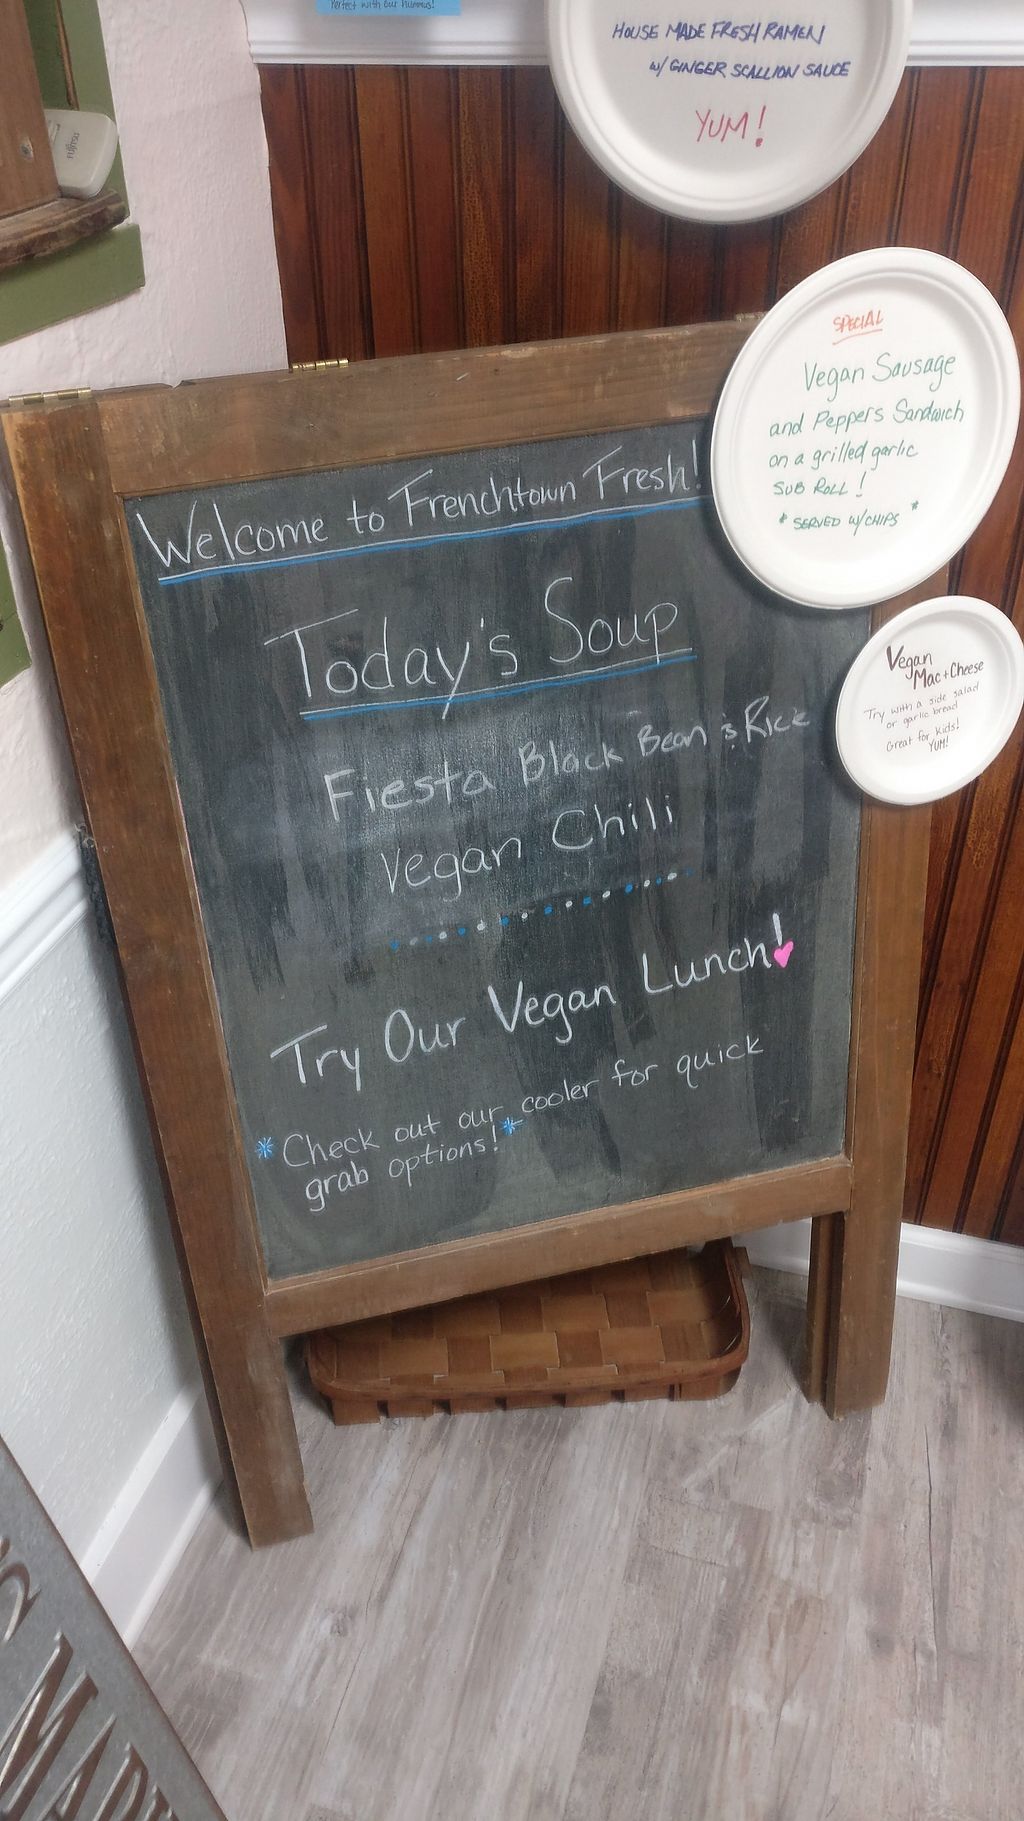 Perfect with our hummus!
HOUSE MADE FRESH RAMEN
w/ GINGER SCALLION SAUCE
YUM!
FUJITSU
SPECIAL
Vegan Sausage
and Peppers Sandwich
on a grilled garlic
SUB ROLL!
* SERVED W/CHIPS *
Vegan
Mac + Cheese
Try with a side salad
or garlic bread
Great for kids!
YUM!
Welcome to Frenchtown Fresh!
Today's Soup
Fiesta Black Bean & Rice
Vegan Chili
Try Our Vegan Lunch!
*Check out our cooler for quick
grab options!*